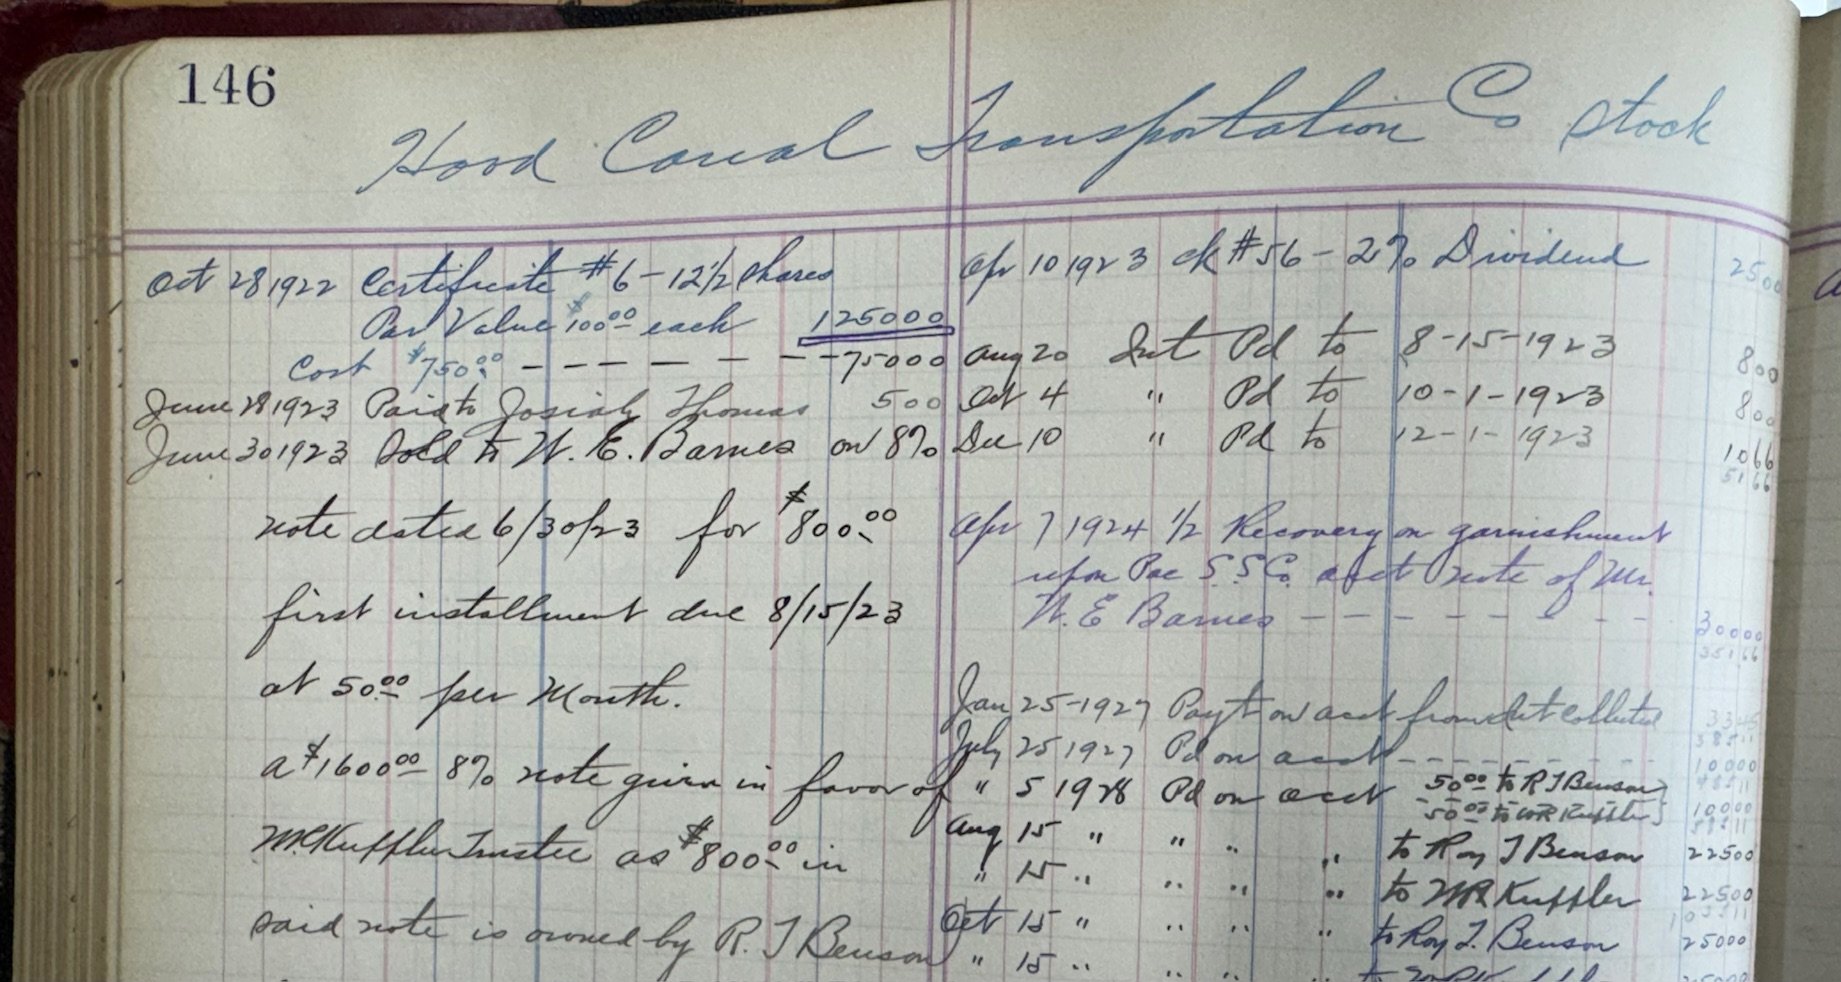 146
Hood Canal Transportation Co Stock
Oct 28 1922 Certificate #6 - 12 1/2 shares
Par Value $100.00 each 1250 00
Cost $750.00 - - - - - - 750 00
June 28 1923 Paid to Josiah Thomas 5 00
June 30 1923 Sold to W. E. Barnes on 8%
note dated 6/30/23 for $800.00
first installment due 8/15/23
at 50.00 per Month.
a $1600.00 8% note given in favor of
Kuffler Trustee as $800.00 in
said note is owned by R. T Benson
Apr 10 1923 ck #56 - 2% Dividend 25 00
Aug 20 Int Pd to 8-15-1923 8 00
Oct 4 " Pd to 10-1-1923 8 00
Dec 10 " Pd to 12-1-1923 10 66
51 66
Apr 7 1924 1/2 Recovery on garnishment
upon Pac S. S Co. acct note of Mr.
W. E Barnes - - - - - - - - 300 00
351 66
Jan 25-1927 Payt on acct from Int collected 33 45
385 11
July 25 1927 Pd on acct - - - - - - 100 00
485 11
" 5 1928 Pd on acct 50.00 to R T Benson }
50.00 to WR Kuffler } 100 00
585 11
Aug 15 " " " " to Roy T Benson 225 00
" 15 " " " " to WR Kuffler 225 00
1035 11
Oct 15 " " " " to Roy T. Benson 250 00
" 15 " " " to